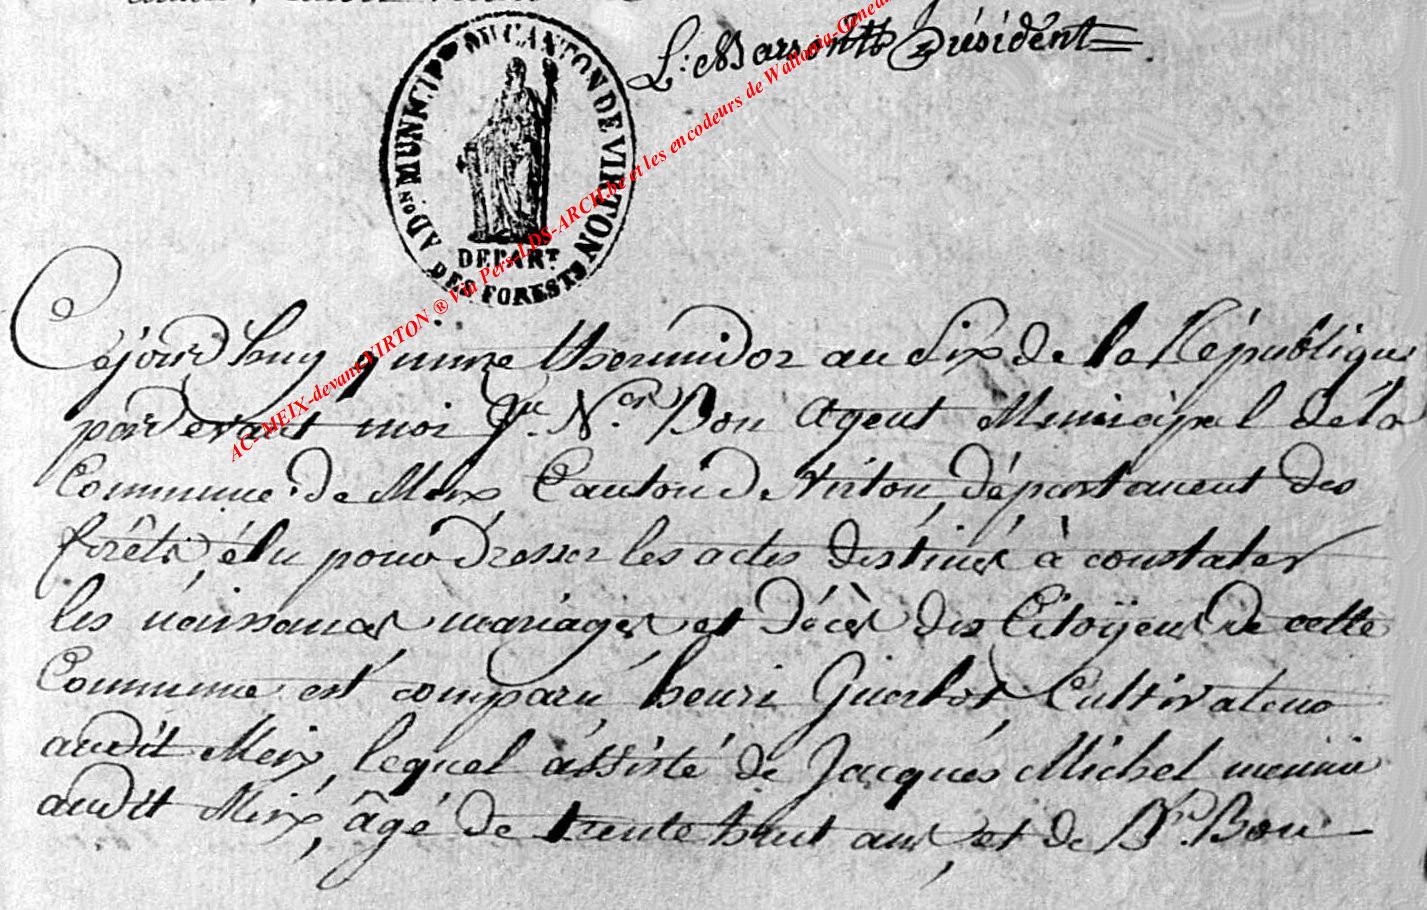 Président
ADon MUNICIPle DU CANTON DE VIRTON
DEPART
DES FORESTS
AC-MEIX-devant-VIRTON ® Via Pers-LDS-ARCH.be et les encodeurs de Wallonia-Genea
Cejourd'huy quinze thermidor an Six de la République
pardevant moi Jn. Ner. Bon Agent Municipal de la
Commune de Meix Canton de Virton, département des
forêts, élu pour dresser les actes destinés à constater
les naissances mariages et décès des Citoÿens de cette
Commune est comparu henri Cultivateur
audit Meix, lequel assisté de Jacques Michel
audit Meix, âgé de trente huit ans, et de Bon